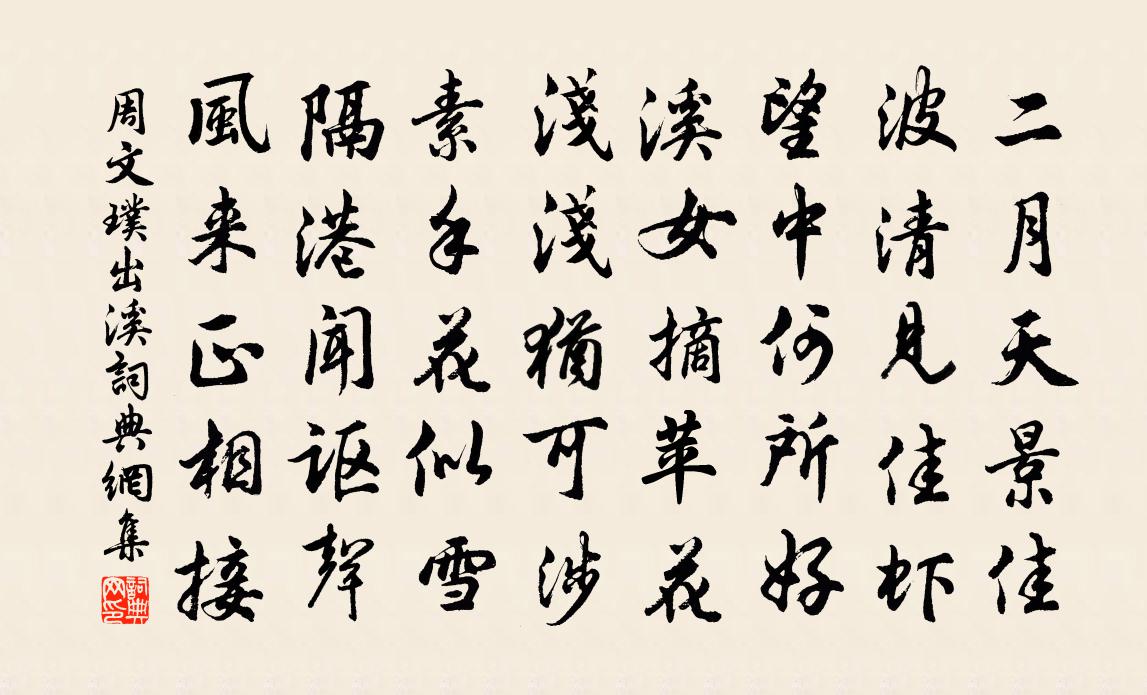 二月天景佳
波清見佳虾
望中何所好
溪女摘苹花
淺淺猶可涉
素手花似雪
隔港聞讴聲
風来正相接
周文璞出溪詞典網集
詞典
网印